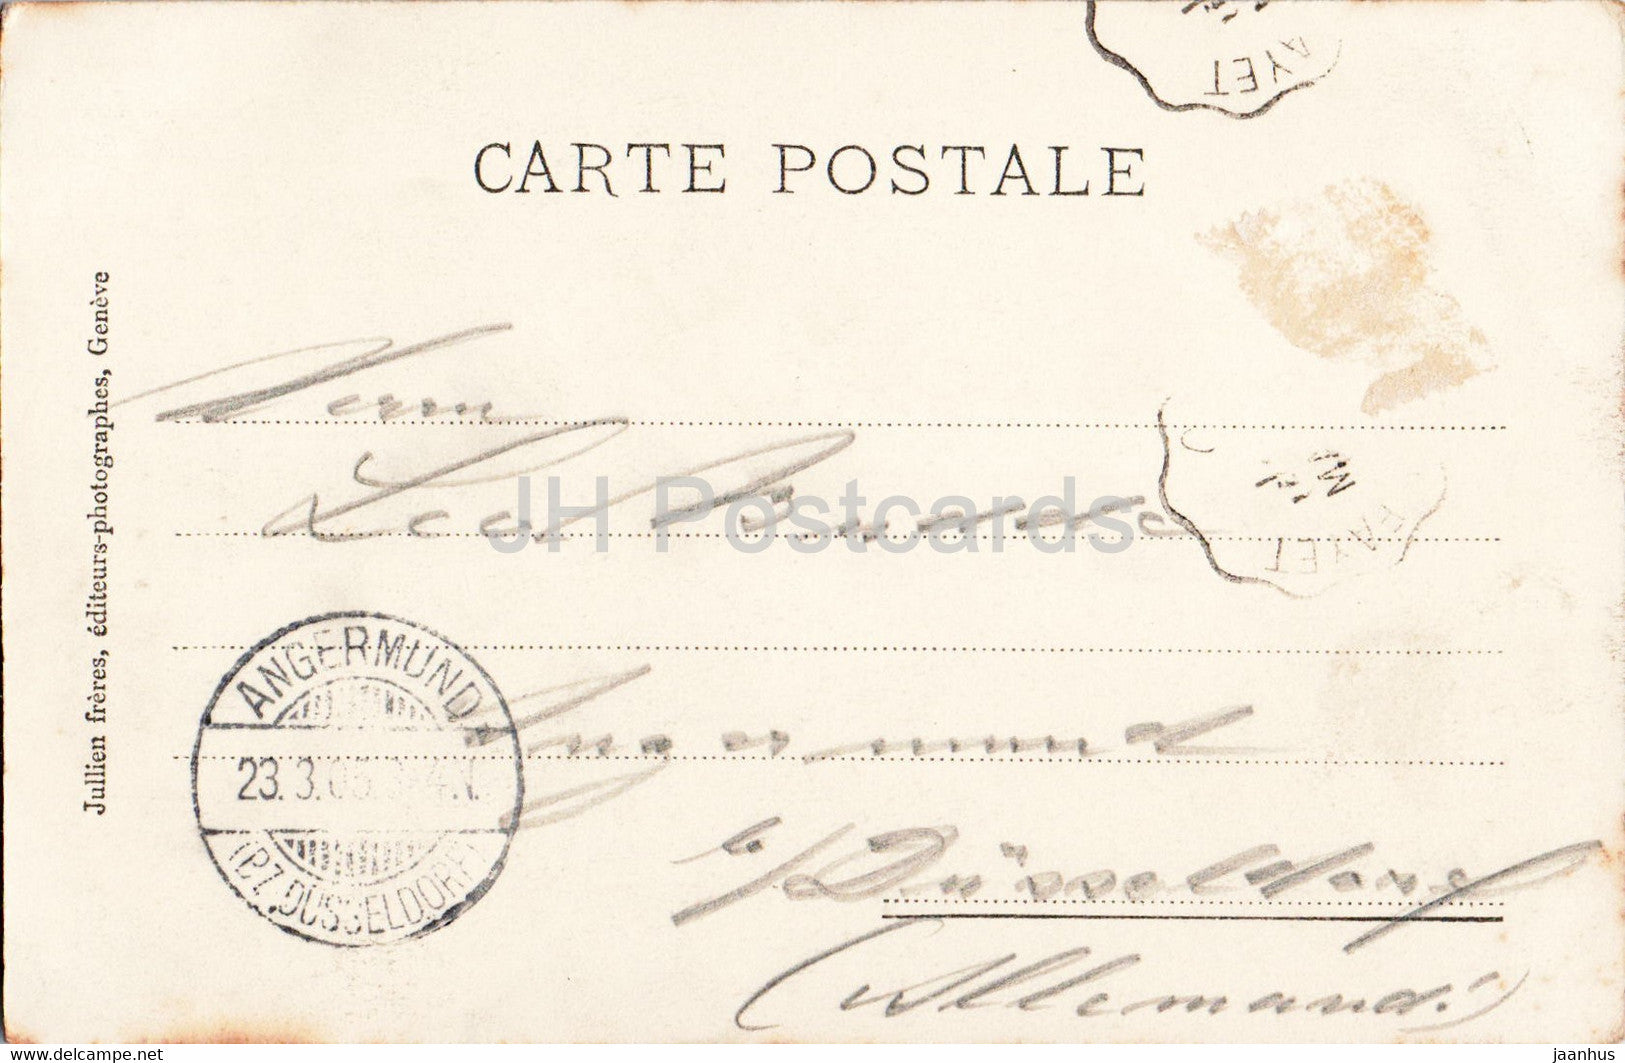 AYET
CARTE POSTALE
Jullien frères, éditeurs-photographes, Genève
Herrn
Leo
JH Postcards
FAYET
ANGERMUND
23. 3.
(BZ. DÜSSELDORF)
Angermund
b/Düsseldorf
(Allemand.)
delcampe.net
jaanhus